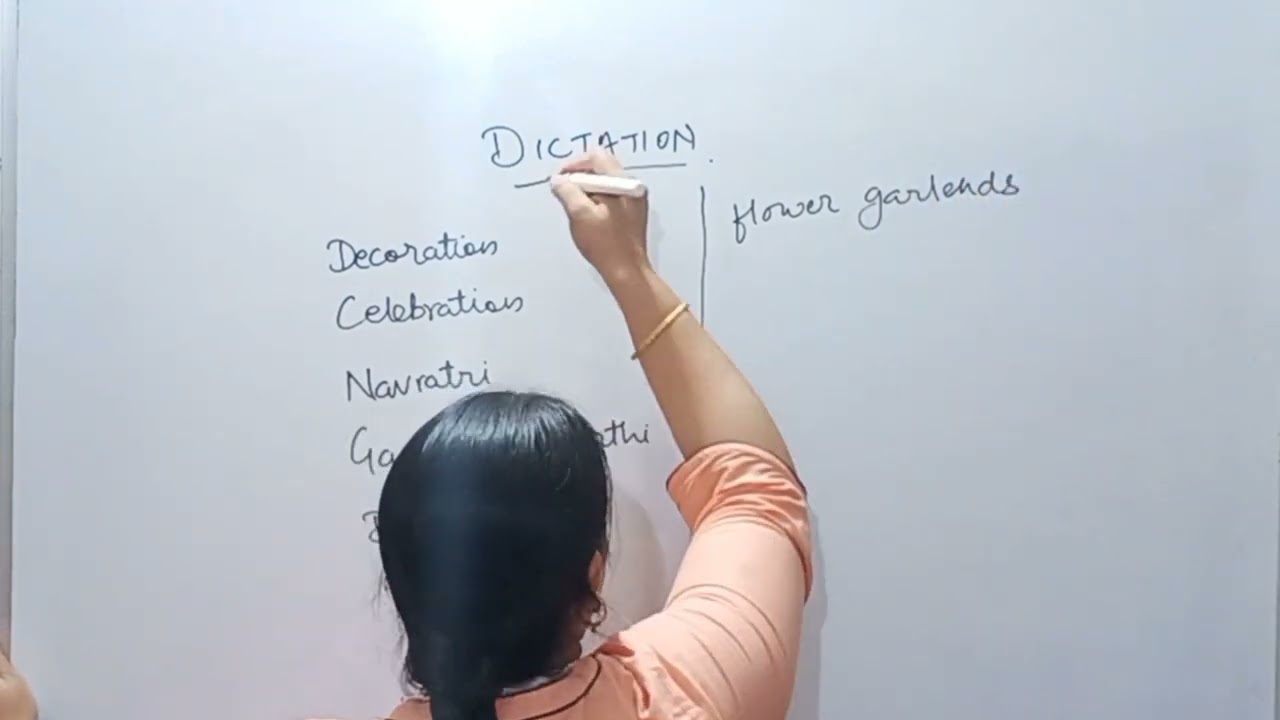 DICTATION.
Decoration
Celebration
Navratri
flower garlends